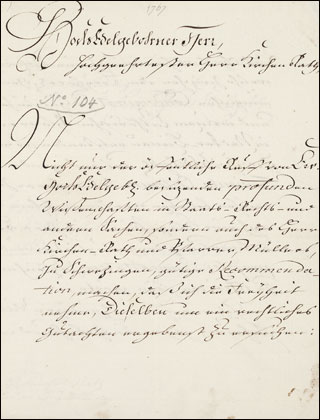 1767
HochEdelgebohrner Herr,
Hochgeehrtester Herr Kirchen Rath
No 104
Nicht nur der öffentliche Ruff von Ew.
HochEdelgeb. besizenden profunden
Wissenschafften in Staats- Rechts- und
andern Sachen, sondern auch des Herrn
Kirchen-Rath und Pfarrer Müllers,
zu Schwezingen, gütige Recommenda-
tion, machen, daß ich die Freyheit
nehme, Dieselben um ein rechtliches
Gutachten ergebenst zu ersuchen: